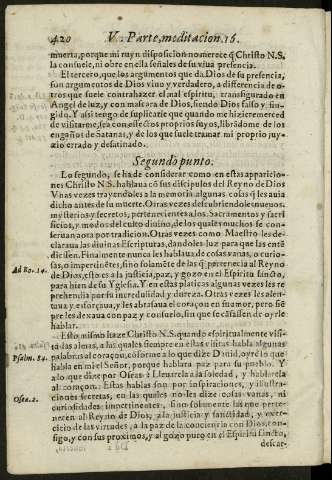 420 V. Parte, meditacion. 16.
muerta, porque mi ruyn disposicion no merece q̃ Christo N.S.
la consuele, ni obre en ella señales de su viua presencia.
El tercero, que los argumentos que da Dios de su presencia,
son argumentos de Dios viuo y verdadero, a diferencia de o-
tros que suele contrahazer el mal espiritu, transfigurado en
Angel de luz, y con mascara de Dios, siendo Dios falso y fin-
gido. Y assi tengo de suplicarte que quando me hiziere merced
de visitarme, sea con estos proprios suyos, librãdome de los
engaños de Satanas, y de los que suele tramar mi proprio juy-
zio errado y desatinado.
Segundo punto.
Lo segundo, se ha de considerar como en estas apparicio-
nes Christo N.S. hablaua cõ sus discipulos del Reyno de Dios
Vnas vezes trayendoles a la memoria algunas cosas q̃ les auia
dicho antes de su muerte. Otras vezes descubriendoles nueuos
mysterios y secretos, pertenecientes a los Sacramentos y sacri
ficios, y modos del culto diuino, de los quales muchos se con-
seruan aora por tradicion. Otras vezes como Maestro les de-
claraua las diuinas Escripturas, dandoles luz para que las entẽ
diessen. Finalmente nunca les hablaua de cosas vanas, curio-
sas, o impertinẽtes, sino solamẽte de las q̃ pertenecia al Reyno
Ad Ro. 14. de Dios, esto es a la justicia, paz, y gozo en el Espiritu sancto,
para bien de su Yglesia. Y en estas platicas algunas vezes les re
prehendia por su incredulidad y dureza. Otras vezes les alen-
taua y esforçaua, y les abrasaua el coraçon en su amor, pero siẽ
pre les dexaua con paz y consuelo, sin que se cãsassen de oyrle
hablar.
Esto mismo haze Christo N.S. quando espiritualmente visi-
ta las almas, a las quales siempre en estas visitas habla algunas
Psalm. 84. palabras al coraçon, cõforme a lo que dize Dauid, oyrè lo que
habla en mi el Señor, porque hablara paz para su pueblo. Y
a lo que dize por Oseas: Lleuarela a la soledad, y hablarela
Osea. 2. al coraçon. Estas hablas son por inspiraciones, y illustra-
ciones secretas, en las quales no les dize cosas vanas, ni
curiosidades impertinentes, sino solamente las que perte-
necen al Reyno de Dios, a la justicia y sanctidad, y exer-
cicio de las virtudes, a la paz de la conciencia con Dios, con-
sigo, y con sus proximos, y al gozo puro en el Espiritu sancto,
descar-